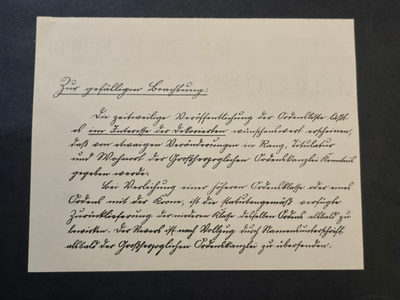 Zur gefälligen Beachtung:
Die zeitweilige Veröffentlichung der Ordensliste läßt
es im Interesse der Dekorierten wünschenswert erscheinen,
daß von etwaigen Veränderungen in Rang, Titulatur
und Wohnort der Großherzoglichen Ordenskanzlei Kenntnis
gegeben werde.
Bei Verleihung einer höheren Ordensklasse oder eines
Ordens mit der Krone, ist die statutengemäß verfügte
Zurücklieferung der niederen Klasse desselben Ordens alsbald zu
bewirken. Der Revers ist nach Vollzug durch Namensunterschrift
alsbald der Großherzoglichen Ordenskanzlei zu übersenden.